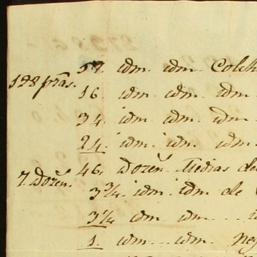 57. idm. idm. Colch
128 pzas. 16 idm. idm. idm
34. idm. idm. idm
24. idm. idm. idm.
7. Dozen. 46. Dozen. Medias de
3¾. idm. idm. de
3¼ idm idm
1. idm. idm. Neg